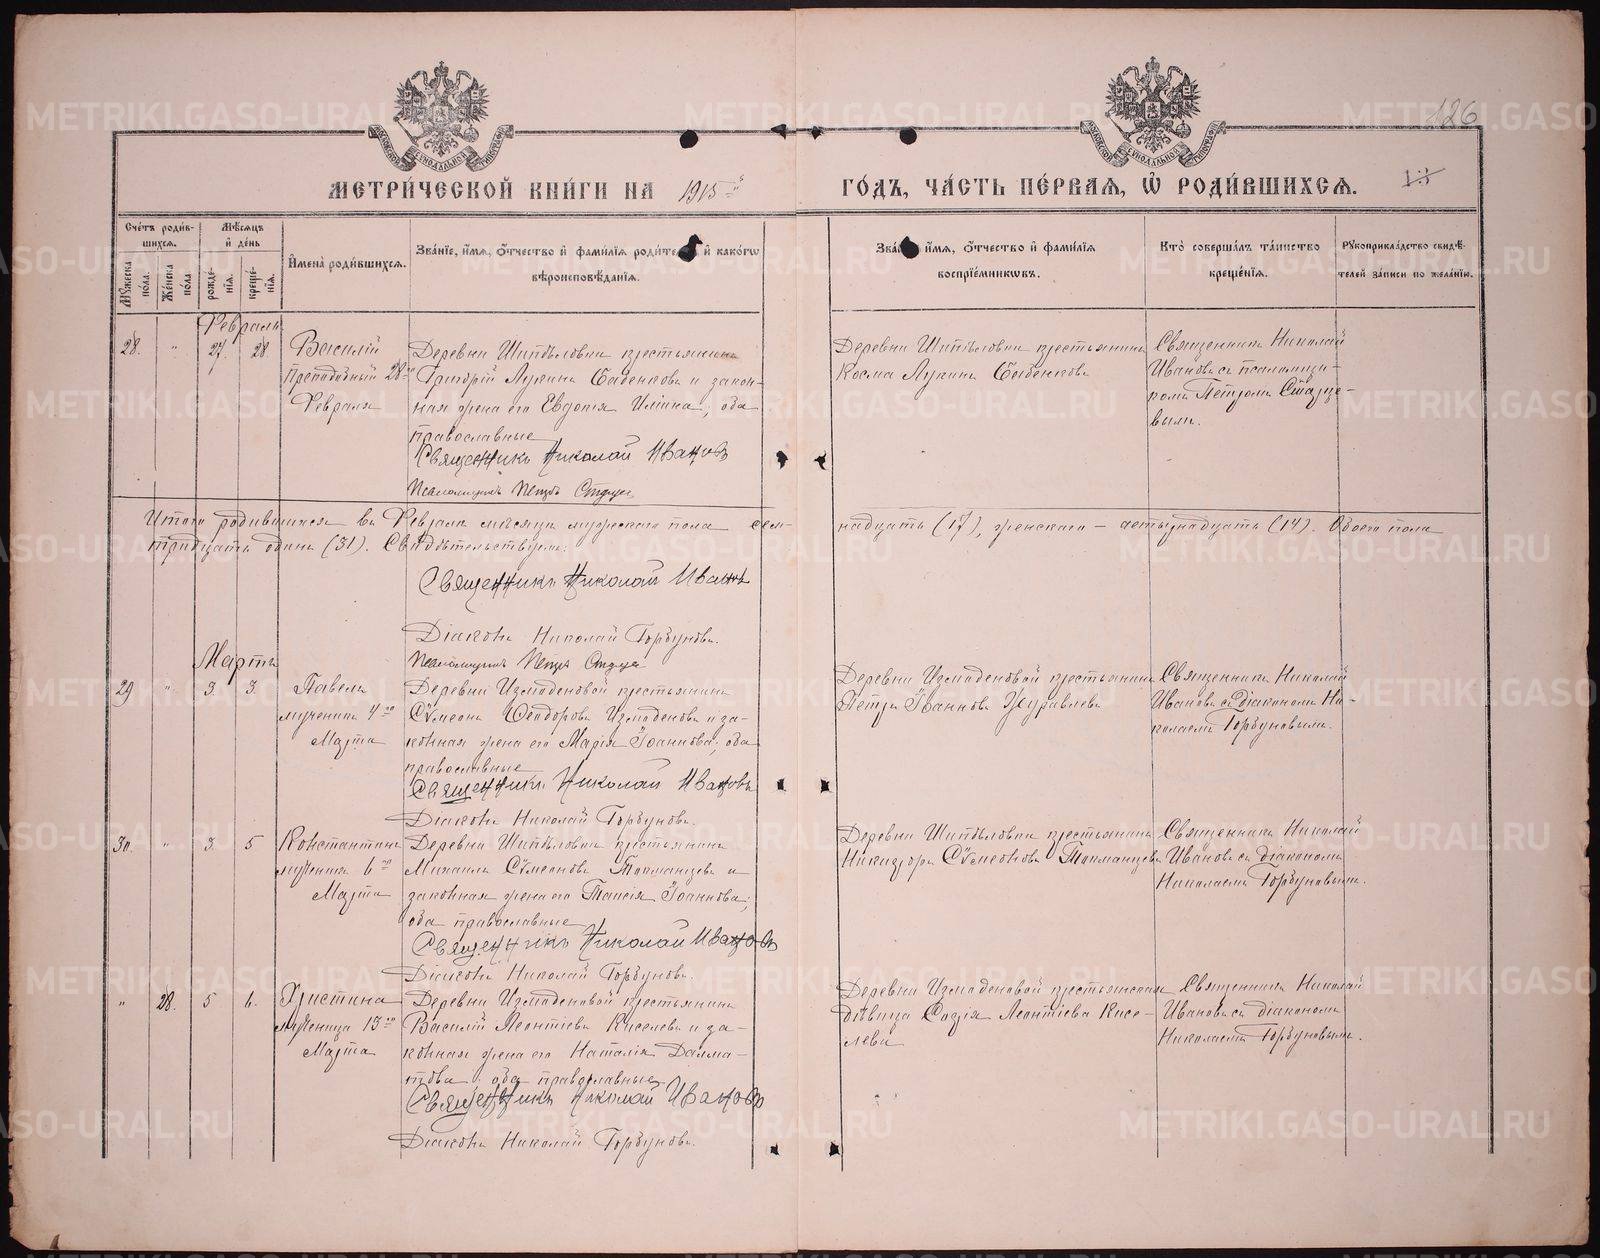 126
МЕТРИ́ЧЕСКОЙ КНИ́ГИ НА 1915-й ГО́ДЪ, ЧА́СТЬ ПЕ́РВАЯ, Ѡ҆ РОДИ́ВШИХСЯ.
Сче́тъ роди́вшихся.
Мѣ́сяцъ и҆ де́нь
Му́жеска по́ла.
Же́нска по́ла.
рожде́нїя.
креще́нїя.
И҆мена̀ роди́вшихся.
Зва́нїе, и҆́мя, ѻ҆́тчество и҆ фами́лїя роди́телей, и҆ како́гѡ
вѣроисповѣ́данїя.
Зва́нїе, и҆́мя, ѻ҆́тчество и҆ фами́лїя
воспрїе́мникѡвъ.
Кто̀ соверша́лъ та́инство
креще́нїя.
Рꙋкоприкла́дство свидѣ́-
телей за́писи по жела́нїю.
Февраль
28. " 27. 28.
Василій
преподобный 28го
Февраля
Деревни Шипѣловки крестьянинъ
Григорій Лукинъ Бабенковъ и закон-
ная жена его Евдокія Иліина, оба
православные
Священникъ Николай Ивановъ
Псаломщикъ Петръ Старцев
Деревни Шипѣловки крестьянинъ
Косма Лукинъ Бабенковъ
Священникъ Николай
Ивановъ съ псаломщи-
комъ Петромъ Старце-
вымъ.
Итого родившихся въ Февралѣ мѣсяцѣ мужескаго пола сем-
надцать (17), женскаго – четырнадцать (14). Обоего пола
тридцать одинъ (31). Свидѣтельствуемъ:
Священникъ Николай Ивановъ
Діаконъ Николай Горбуновъ.
Псаломщикъ Петръ Старцев
Мартъ
29 " 3. 3.
Павелъ
мученикъ 4го
Марта
Деревни Измоденовой крестьянинъ
Сѵмеонъ Ѳеодоровъ Измоденовъ и за-
конная жена его Марія Іоаннова, оба
православные
Священникъ Николай Ивановъ
Діаконъ Николай Горбуновъ.
Деревни Измоденовой крестьянинъ
Петръ Іоанновъ Журавлевъ
Священникъ Николай
Ивановъ съ діакономъ Ни-
колаемъ Горбуновымъ.
30. " 3. 5
Константинъ
мученикъ 6го
Марта
Деревни Шипѣловки крестьянинъ
Михаилъ Сѵмеоновъ Токманцевъ и
законная жена его Таисія Іоаннова,
оба православные
Священникъ Николай Ивановъ
Діаконъ Николай Горбуновъ.
Деревни Шипѣловки крестьянинъ
Никифоръ Сѵмеоновъ Токманцевъ
Священникъ Николай
Ивановъ съ діакономъ
Николаемъ Горбуновымъ.
" 28. 5 6.
Христина
мученица 13го
Марта
Деревни Измоденовой крестьянинъ
Василій Леонтіевъ Киселевъ и за-
конная жена его Наталія Далма-
това, оба православные
Священникъ Николай Ивановъ
Діаконъ Николай Горбуновъ.
Деревни Измоденовой крестьянская
дѣвица Софія Леонтіева Кисе-
лева
Священникъ Николай
Ивановъ съ діакономъ
Николаемъ Горбуновымъ.
METRIKI.GASO-URAL.RU